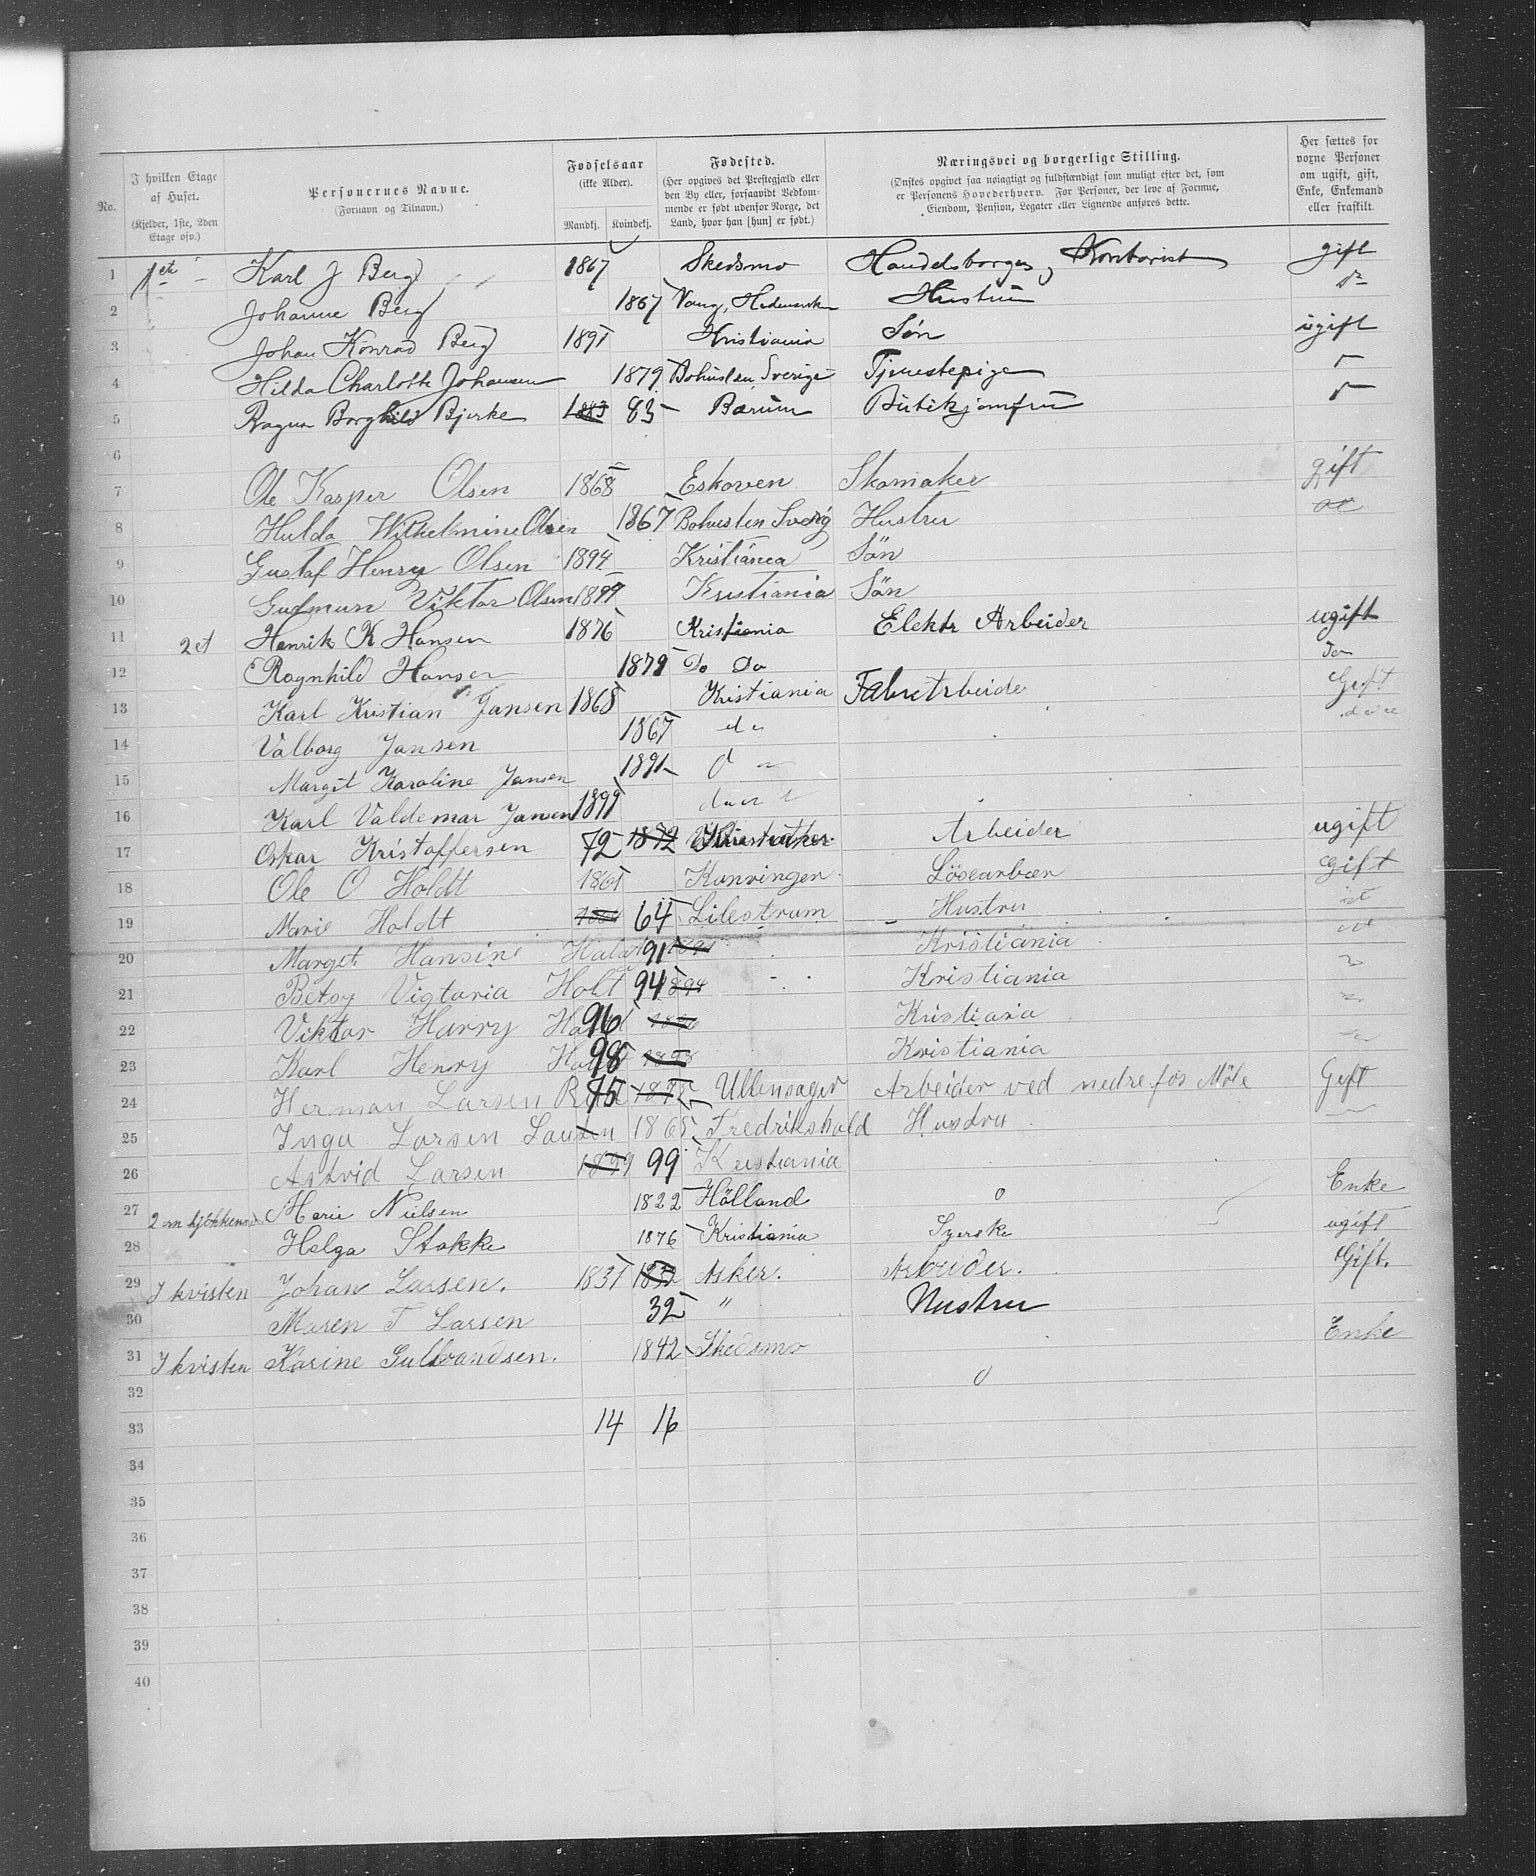 No.
I hvilken Etage af Huset.
(Kjelder, 1ste, 2den Etage osv.)
Personernes Navne.
(Fornavn og Tilnavn.)
Fødselsaar
(ikke Alder).
Mandkj. Kvindekj.
Fødested.
(Her opgives det Prestegjæld eller den By eller, forsaavidt Vedkommende er født udenfor Norge, det Land, hvor han [hun] er født.)
Næringsvei og borgerlige Stilling.
(Ønskes opgivet saa nøiagtigt og fuldstændigt som muligt efter det, som er Personens Hovederhverv. For Personer, der leve af Formue, Eiendom, Pension, Legater eller Lignende anføres dette.
Her sættes for voxne Personer om ugift, gift, Enke, Enkemand eller fraskilt.
1 1 et Karl J Berg 1867 Skedsmo Handelsborger, Kontorist gift
2 Johanne Berg 1867 Vang, Hedemarken Hustru
3 Johan Konrad Berg 1891 Kristiania Søn ugift
4 Hilda Charlotte Johansen 1879 Bohuslen, Sverige Tjenestepige
5 Ragna Borghild Bjerke 1883 83 Bærum Butikjomfru
6
7 Ole Kasper Olsen 1868 Eskoven Skomaker gift
8 Hulda Wilhelmine Olsen 1867 Bohuslen Sverig Hustru
9 Gustaf Henry Olsen 1894 Kristiania Sön
10 Gudmun Viktor Olsen 1899 Kristiania Sön
11 2 et Henrik K Hansen 1876 Kristiania Elektr Arbeider ugift
12 Ragnhild Hansen 1879 Do Do Do
13 Karl Kristian Jansen 1868 Kristiania Gift
14 Valborg Jansen 1867 do
15 Margit Karoline Jansen 1891
16 Karl Valdemar Jansen 1899
17 Oskar Kristoffersen 72 1872 Arbeider ugift
18 Ole O Holdt 1861 Kunvinger Lösearbær gift
19 Marie Holdt 64 Lilestrøm Hustru
20 Margit Hansine 91 Kristiania
21 Betsy Vigtaria Holt 94 1894 Kristiania
22 Viktor Harry 96 Kristiania
23 Karl Henry 98 1898 Kristiania
24 Herman Larsen 75 1875 Ullensager Arbeider ved nedre fos Möle Gift
25 Inga Larsen 1865 Fredrikshald Hustru
26 Astrid Larsen 1899 99 Kristiania
27 2 Marie Nielsen 1822 Hölland 0 Enke
28 Helga Stokke 1876 Kristiania Syerske ugift
29 I kvisten Johan Larsen. 1831 1832 Asker. Arbeider. Gift.
30 Maren T Larsen 32 " Hustru
31 I kvisten Karine Gulbrandsen. 1842 Skedsmo 0 Enke
32
33 14 16
34
35
36
37
38
39
40